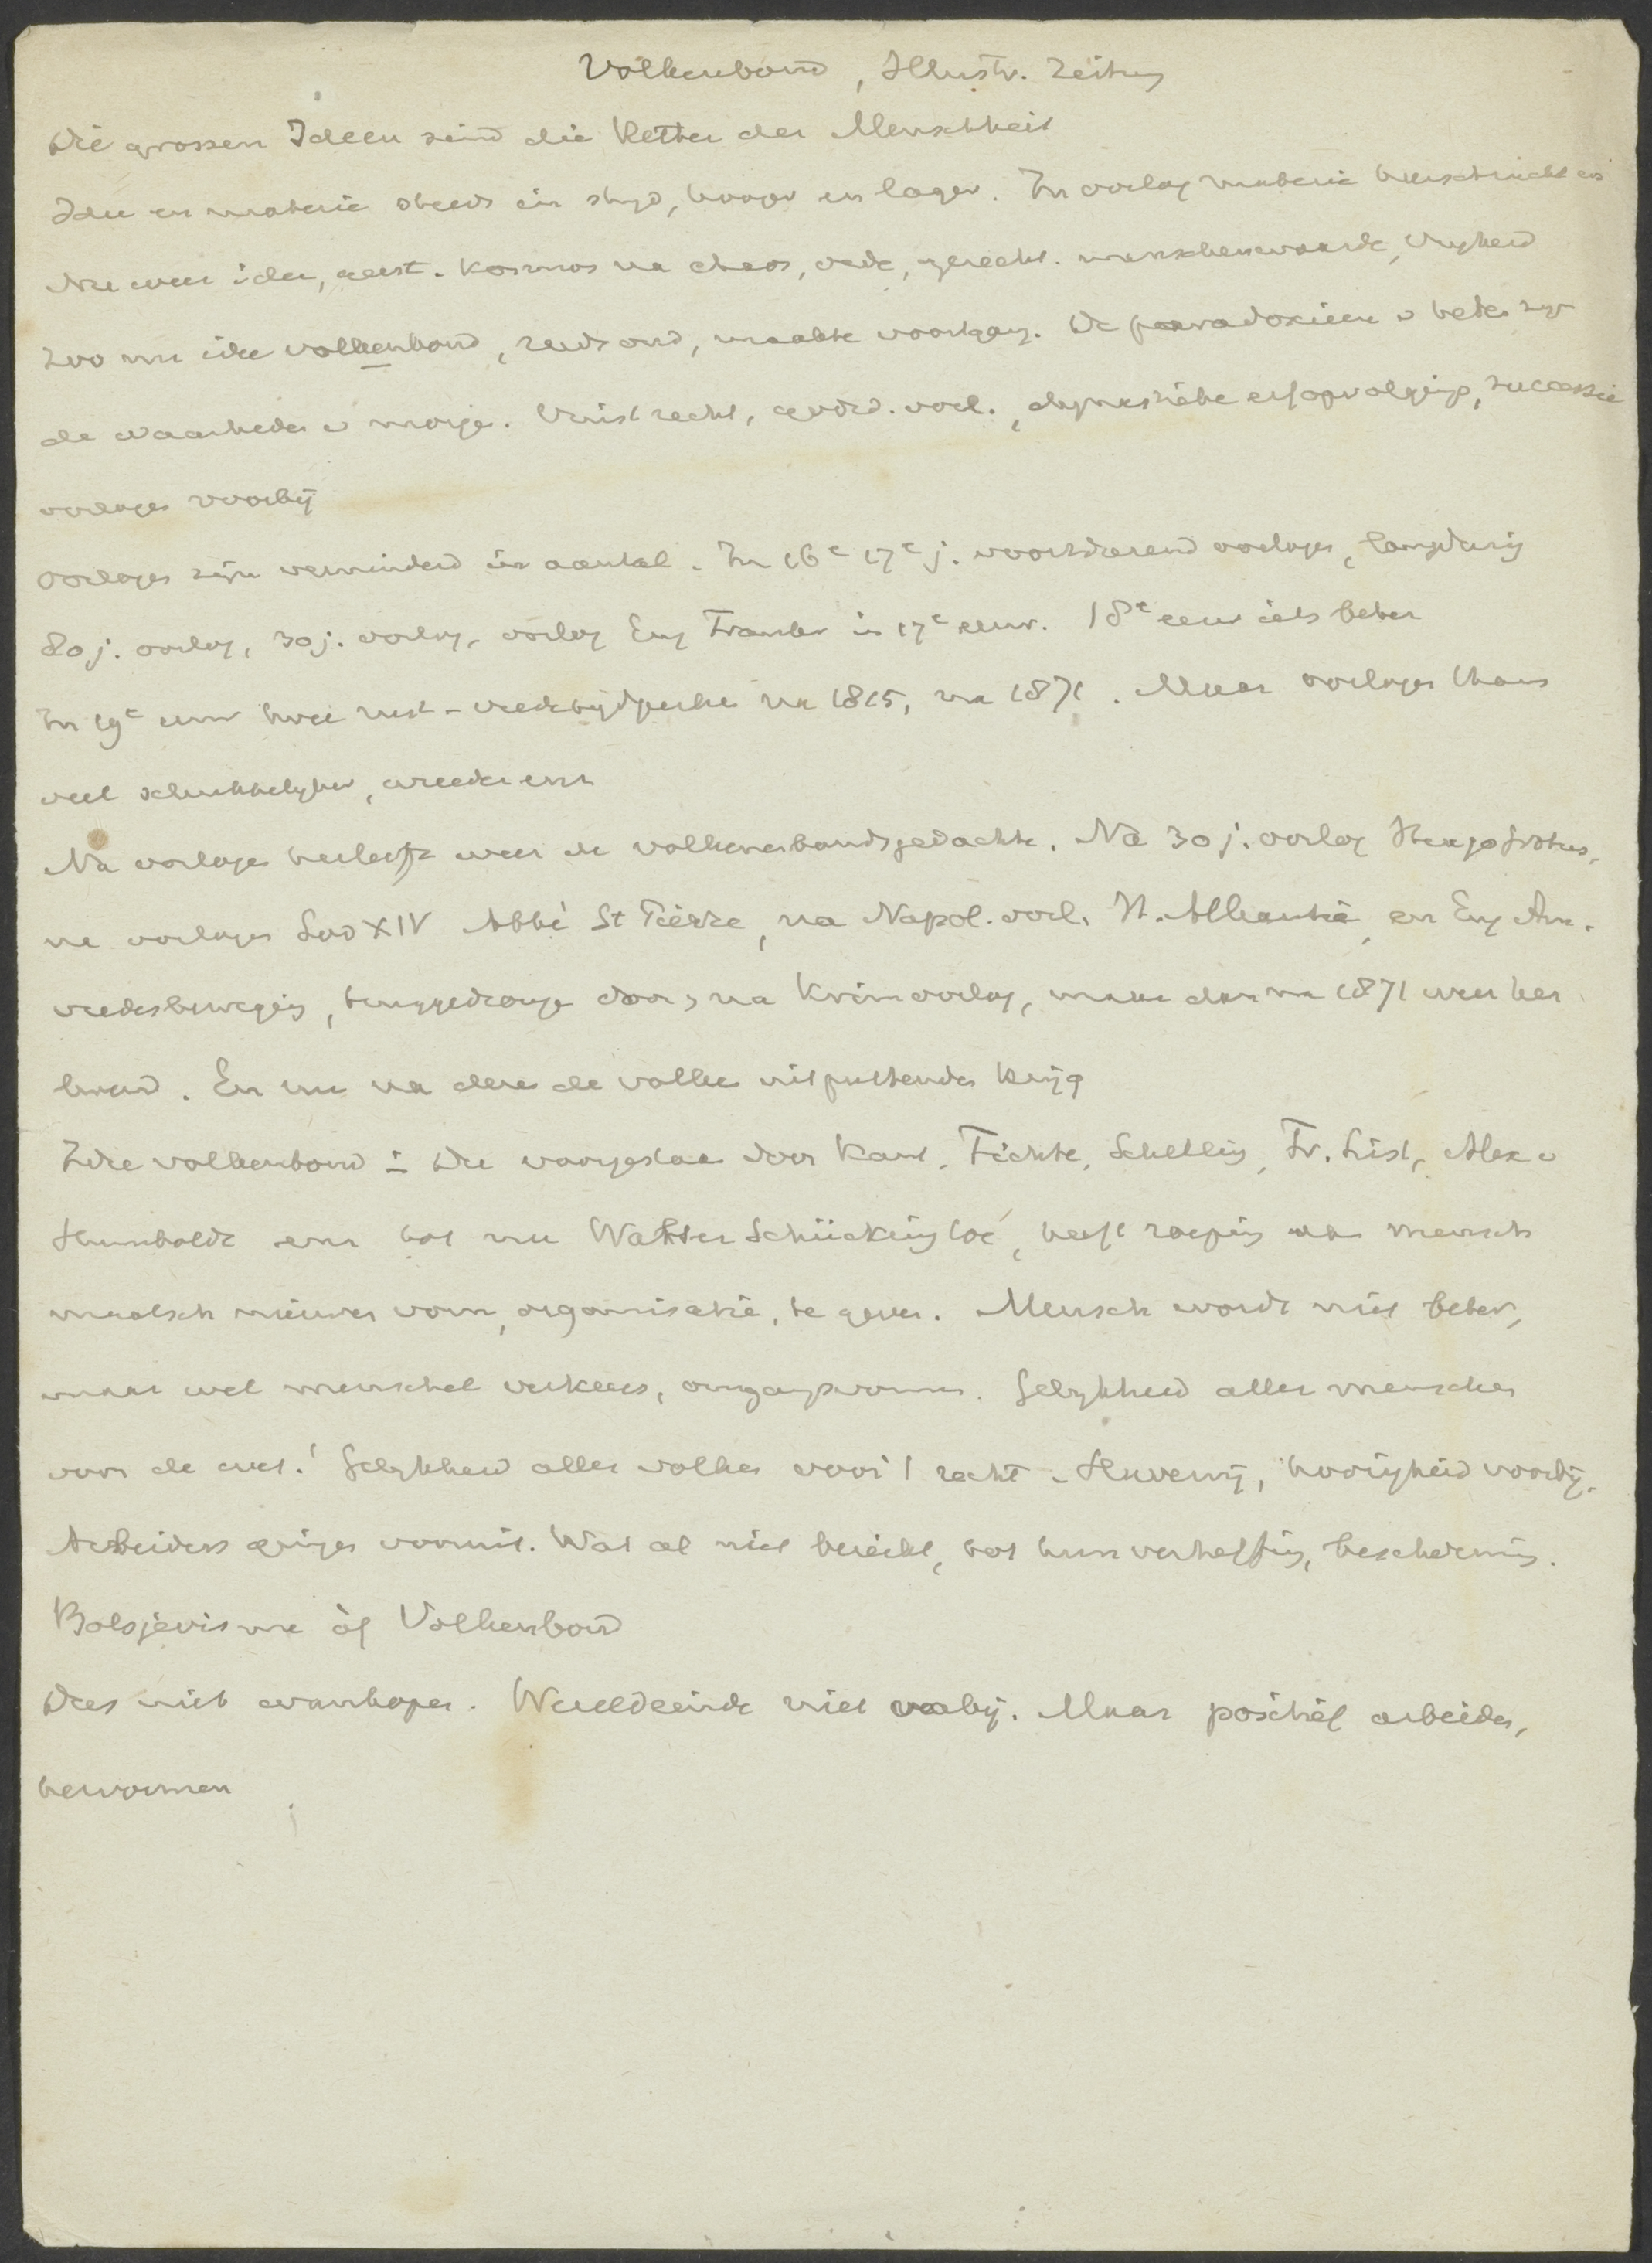 Volkenbond, Illustr. Zeitung
Die grossen Ideen sind die Retter der Menschheit
Idee en materie steeds in stryd, hooger en lager. In oorlog materie heerscht
Nu weer idee, geest. Kosmos na chaos, vrede, gerecht. menschenwaarde, vryheid
Zoo nu idee volkenbond, reeds oud, maakte voortgang. De paradoxieen v heden zyn
de waarheden v morgen. Vuistrecht, godsd. oorl., dynastieke erfopvolging, successie
oorlogen voorbij
Oorlogen zijn verminderd in aantal. In 16e 17e j. voortdurend oorlogen, langdurig
80 j. oorlog, 30 j. oorlog, oorlog Eng Frankr in 17e eeuw. 18e eeuw iets beter
In 19e eeuw twee rust- vredetijdperken na 1815, na 1871. Maar oorlogen thans
veel schrikkelyker, wreeder enz
Na oorlogen herleefde weer de volkenbondsgedachte. Na 30 j. oorlog Hugo Grotius,
na oorlogen Lod XIV Abbé St Pierre, na Napol. oorl. H. Alliantie, en Eng Am.
vredesbeweging, teruggedrongen door, na Krimoorlog, maar dan na 1871 weer her
leefd. En nu na deze de volken uitputtende krijg
Idee volkenbond : Die voorgestaan door Kant, Fichte, Schelling, Fr. List, Alex v
Humboldt enz tot nu Walther Schücking toe, heeft roeping aan mensch
maatsch nieuwen vorm, organisatie, te geven. Mensch wordt niet beter,
maar wel menschel verkeer, omgangsvormen. Gelykheid aller menschen
voor de wet! Gelykheid aller volken voor 't recht. Slavernij, hoorigheid voorbij.
Arbeiders gingen vooruit. Wat al niet bereikt, tot hun verheffing, bescherming.
Bolsjevisme òf Volkenbond
Dus niet wanhopen. Wereldeinde niet nabij. Maar positief arbeiden,
hervormen